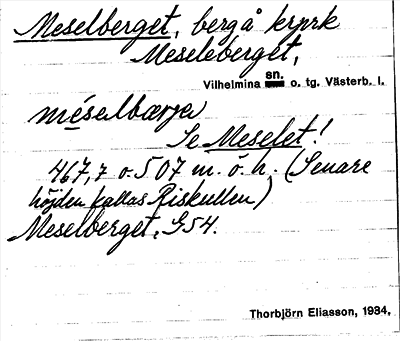 Meselberget, bergå krprk
Meseleberget,
Vilhelmina sn. o. tg. Västerb. l.
méselbærja
Se Meselet!
467,7 o. 507 m. ö. h. (Senare
höjden kallas Riskullen)
Meselberget, G54.
Thorbjörn Eliasson, 1984,